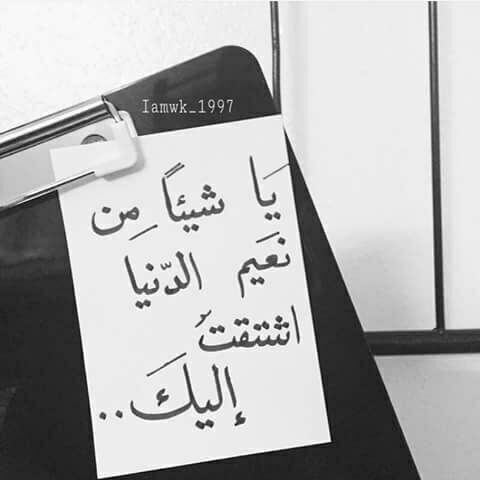 Iamwk_1997
يَا شيئاً مِن
نَعَيم الدّنيا
اشتقتُ
إليكَ..